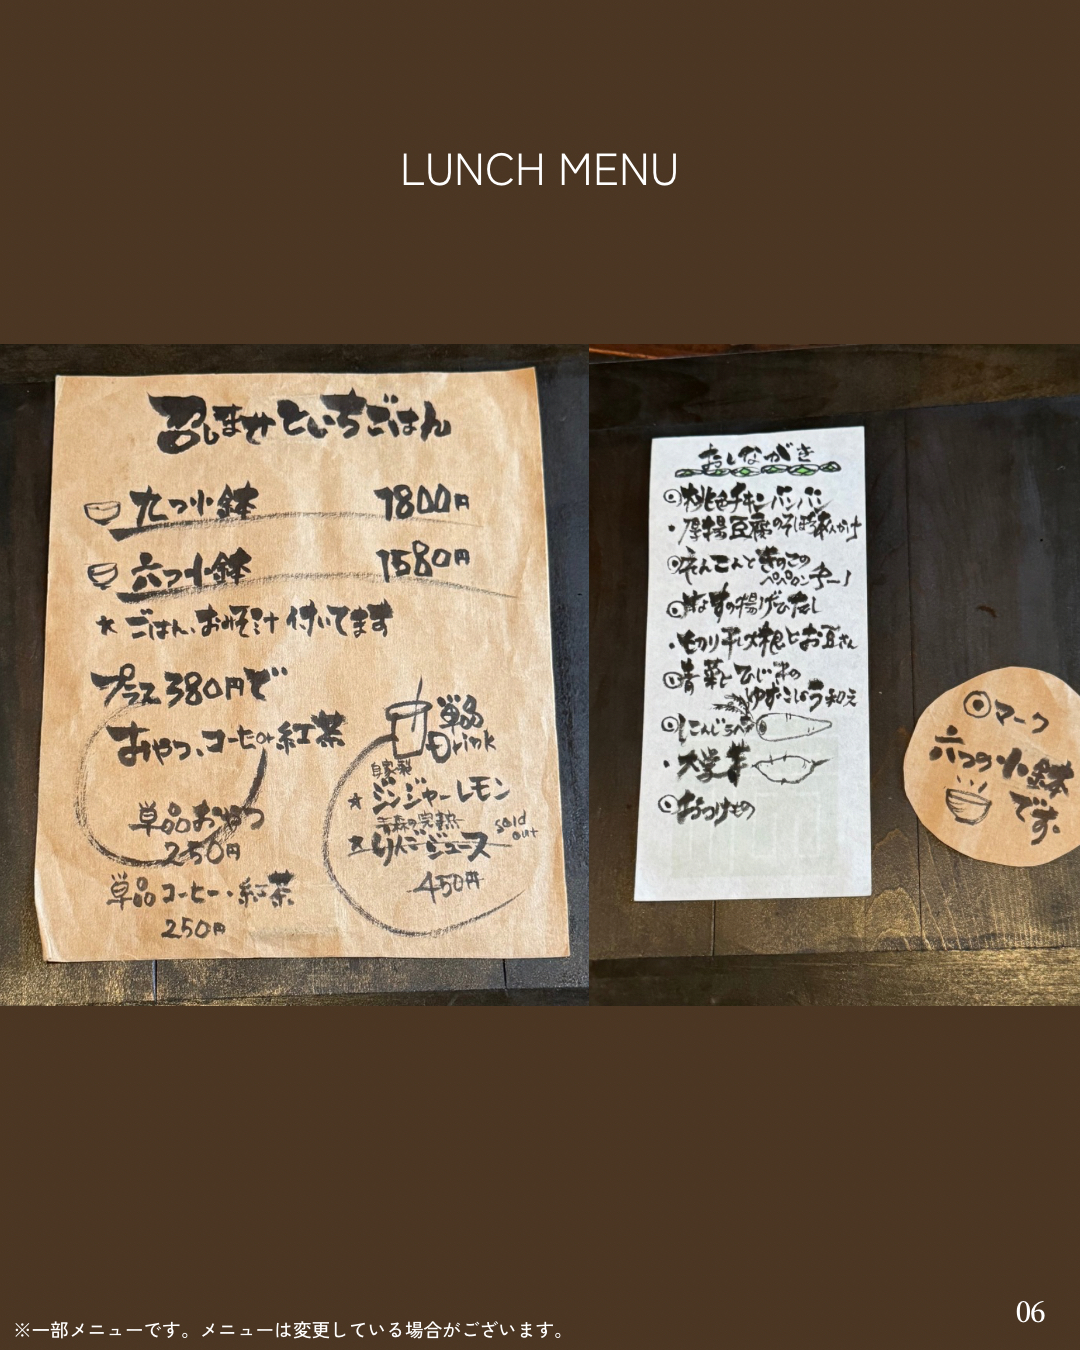 LUNCH MENU
召しませといちごはん
九つ小鉢 1800円
六つ小鉢 1580円
*ごはん、おみそ汁 付いてます
プラス380円で
おやつ、コーヒーor紅茶
単品おやつ
250円
単品コーヒー・紅茶
250円
単品
Drink
自家製
☆ジンジャーレモン
青森の完熟
りんごジュース
sold
out
450円
おしながき
◎桃色チキンバンバン
・厚揚豆腐のそぼろあんかけ
◎れんこんときのこの
ペペロンチーノ
◎なすの揚げびたし
・切り干し大根とお豆さん
◎青菜とひじきの
ゆずこしょう和え
◎しこんにゃく
・大学芋
◎おつけもの
◎マーク
六つの小鉢
です
※一部メニューです。メニューは変更している場合がございます。
06